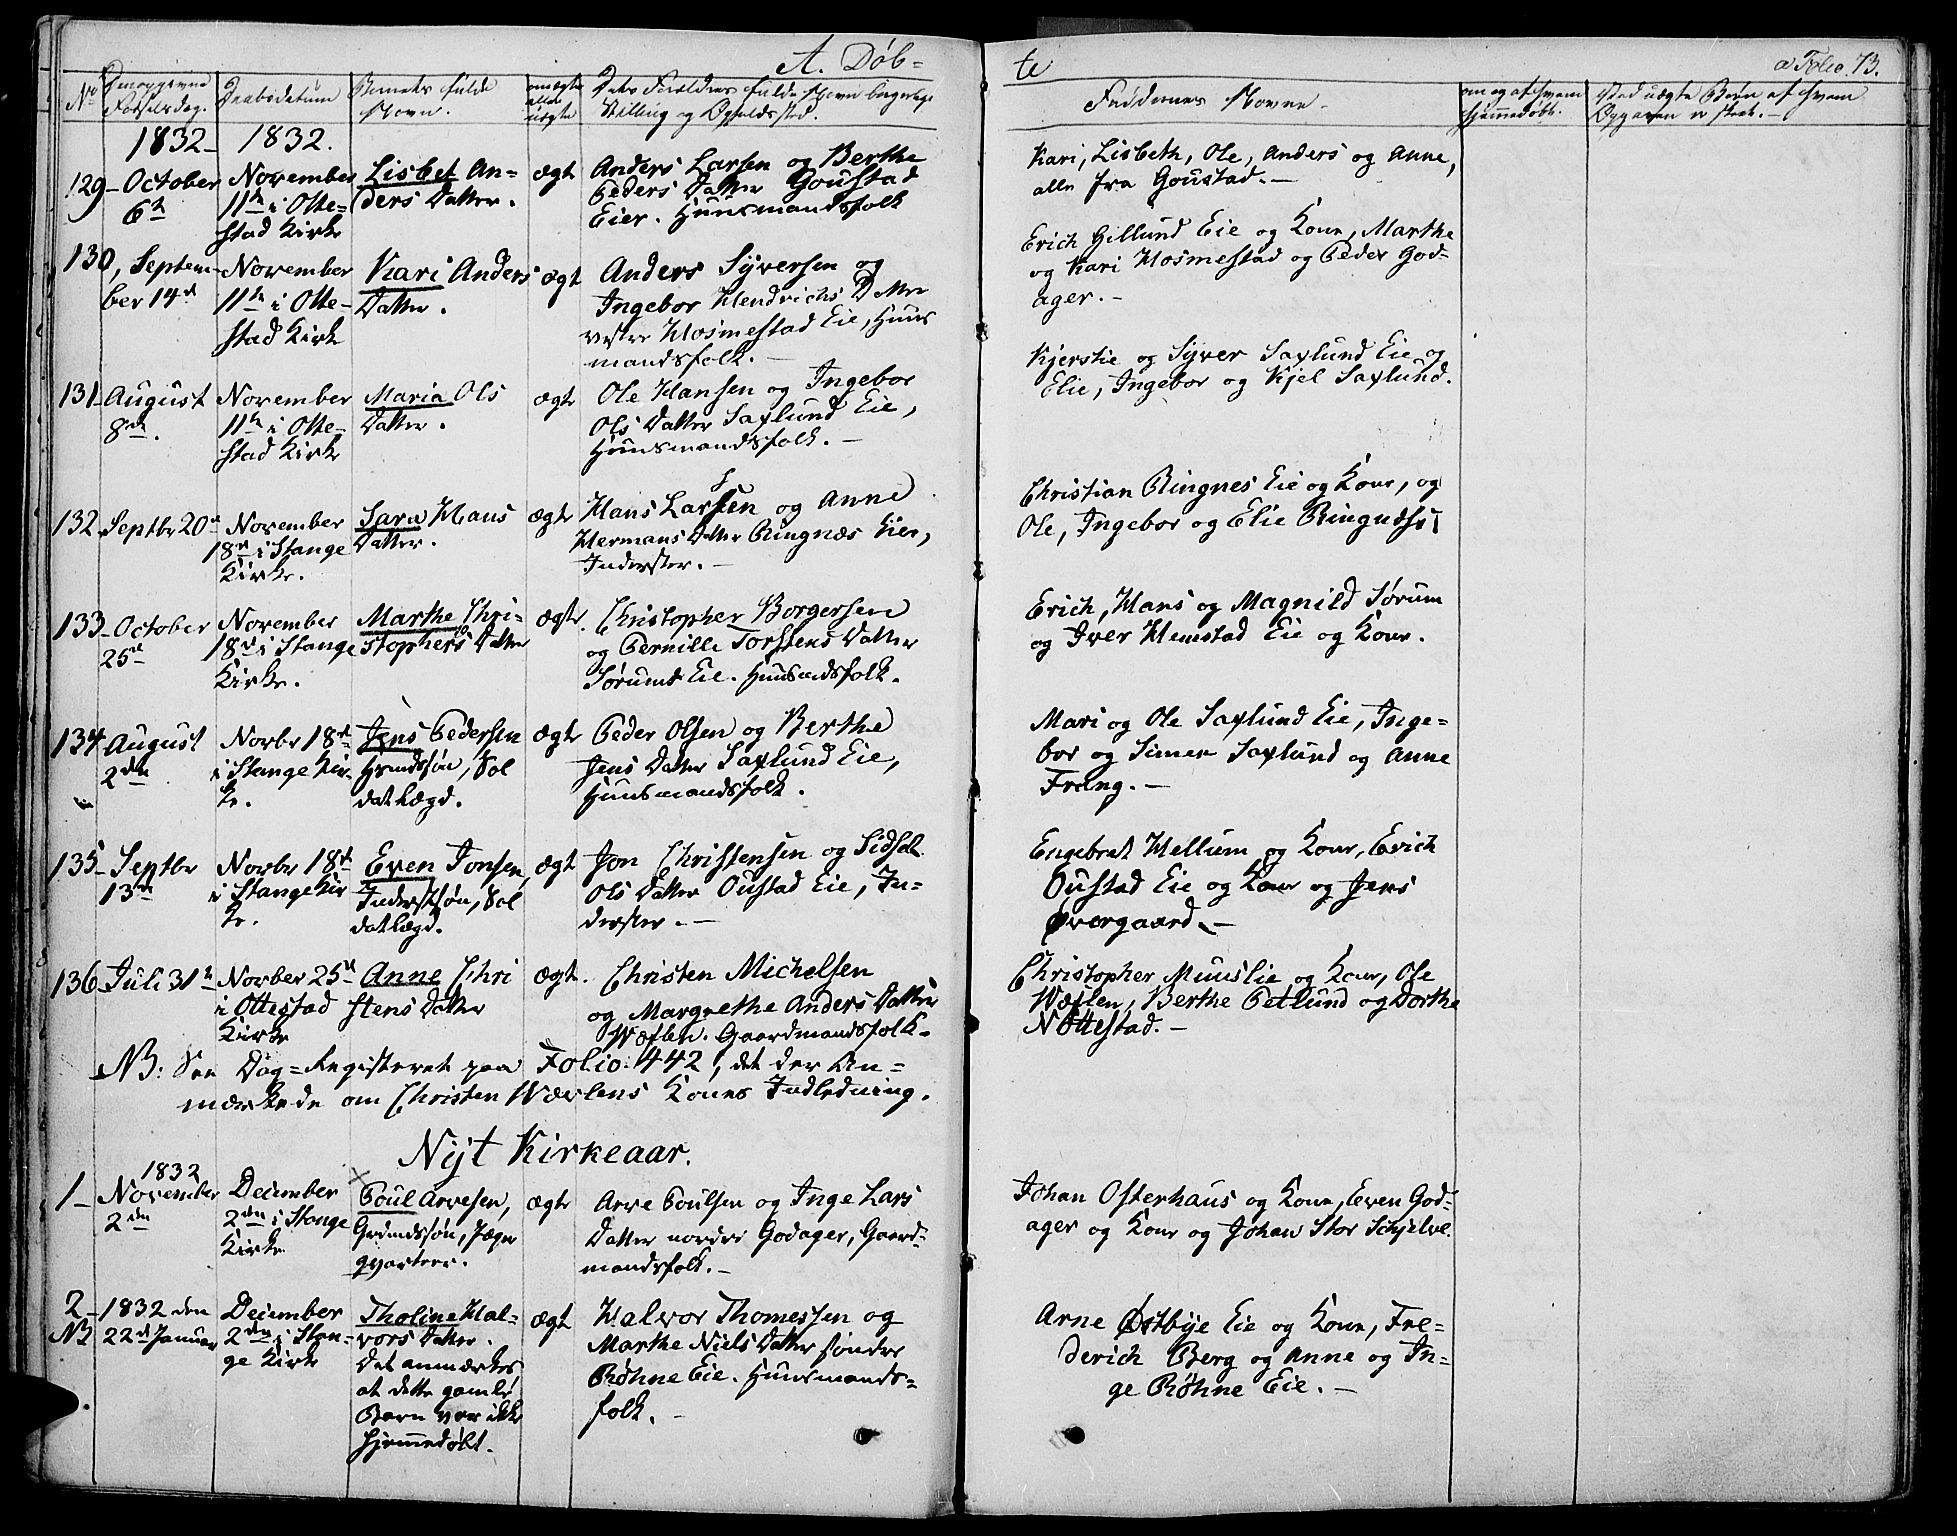 A. Døb=
te
a Folio. 73.
No
Fødselsdag.
Daabsdatum
Barnets fulde
Navn.
uægte
eller
ægte
Dets Forældres fulde Navn
Stilling og Opholdssted.
Faddernes Navne.
om og af hvem
hjemmedøbt.
Ved uægte Børn af hvem
1832 -
1832.
129 - October
6te
November
11te i Otte=
stad Kirke
Lisbet An=
ders Datter.
ægt
Anders Larsen og Berthe
Peders Datter Goustad
Eier. Huusmandsfolk
Kari, Lisbeth, Ole, Anders og Anne,
alle fra Goustad. -
130, Septem-
ber 14d
November
11te i Otte-
stad Kirke
Kari Anders
Datter.
ægt
Anders Syversen og
Ingebor Hendrichs Datter
vestre Hosmestad Eie, Huus
mandsfolk. -
Erich Gillund Eie og Kone, Marthe
og Kari Hosmestad og Peder God-
ager. -
131 - August
8de.
November
11te i Otte-
stad Kirke
Maria Ols
Datter.
ægte
Ole Hansen og Ingebor
Ols Datter Saxlund Eie,
Huusmandsfolk. -
Kjerstie og Syver Saxlund Eie og
Elie, Ingebor og Kjel Saxlund.
132 - Septbr 20d
November
18de i Stange
Kirke.
Sara Hans
Datter.
ægte
Hans Larsen og Anne
Hermans Datter Ringnæs Eier,
Inderster. -
Christian Ringnes Eie og Kone, og
Ole, Ingebor og Elie Ringnæss
133 - October
25de
November
18de i Stange
Kirke.
Marthe Chri-
stophers Datter
ægte.
Christopher Borgersen
og Pernille Torstens Datter
Sørums Eie. Huusmdsfolk.
Erich, Hans og Magnild Sørum
og Iver Hemstad Eie og Kone.
134 - August
2den
Novbr 18de
i Stange Kir-
ke.
Jens Pedersen
Huusmdssøn, Sol
datlægd.
ægte
Peder Olsen og Berthe
Jens Datter Saxlund Eie,
Huusmandsfolk.
Mari og Ole Saxlund Eie, Inge=
bor og Simen Saxlund og Anne
Frang. -
135 - Septbr
13de
Novbr 18de
i Stange Kir
ke.
Even Jonsen,
Inderstsøn, Sol
datlægd.
ægt
Jon Christensen og Sidsel
Ols Datter Oustad Eie, In=
derster. -
Engebret Hellum og Kone, Erich
Oustad Eie og Kone og Jens
Øvergaard. -
136 - Juli 31te
Novber 25de
i Ottestad
Kirke
Anne Chri
stens Datter
ægt.
Christen Michelsen
og Margrethe Anders Datter
Wæflen. Gaardmandsfolk.
Christopher Muuslie og Kone, Ole
Wæflen, Berthe Petlund og Dorthe
Nottestad. -
NB: See Dag=Registeret paa Folio: 442, det der An=
mærkede om Christen Wævlens Kones Indledning.
Nyt Kirkeaar.
1 -
1832
November
2den
December
2den i Stange
Kirke
Poul Arvesen,
Grdmdssøn, Jæger
qvarteer.
ægte
Arve Poulsen og Inge Lars
Datter nordre Godager, Gaard=
mandsfolk. -
Johan Osterhaus og Kone, Even God=
ager og Kone og Johan Stor Schjelve.
2 -
NB
1832 den
22de Januar
December
2den i Stan-
ge Kirke
Tholine Hal-
vors Datter.
Det anmærkes
at dette gamle
Barn var ikke
hjemmedøbt.
ægt
Halvor Thomessen og
Marthe Niels Datter søndre
Røhne Eie. Huusmands=
folk. -
Arne Østbye Eie og Kone, Fre=
derich Berg og Anne og In=
ge Røhne Eie. -